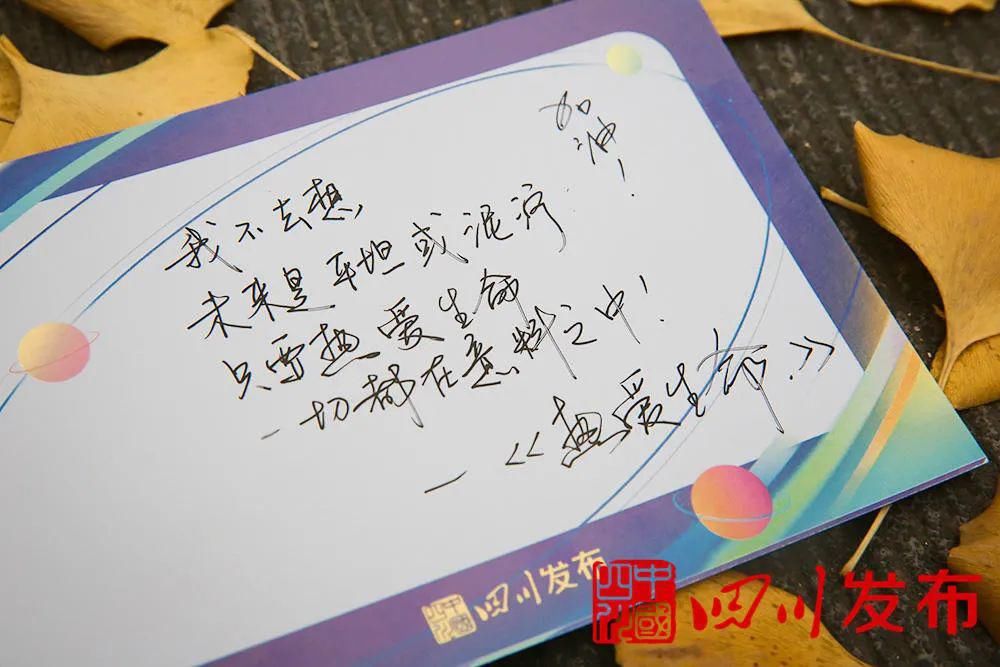 加油！
我不去想，
未来是平坦或泥泞
只要热爱生命
一切都在意料之中！
—《热爱生命》
四川发布
四川发布